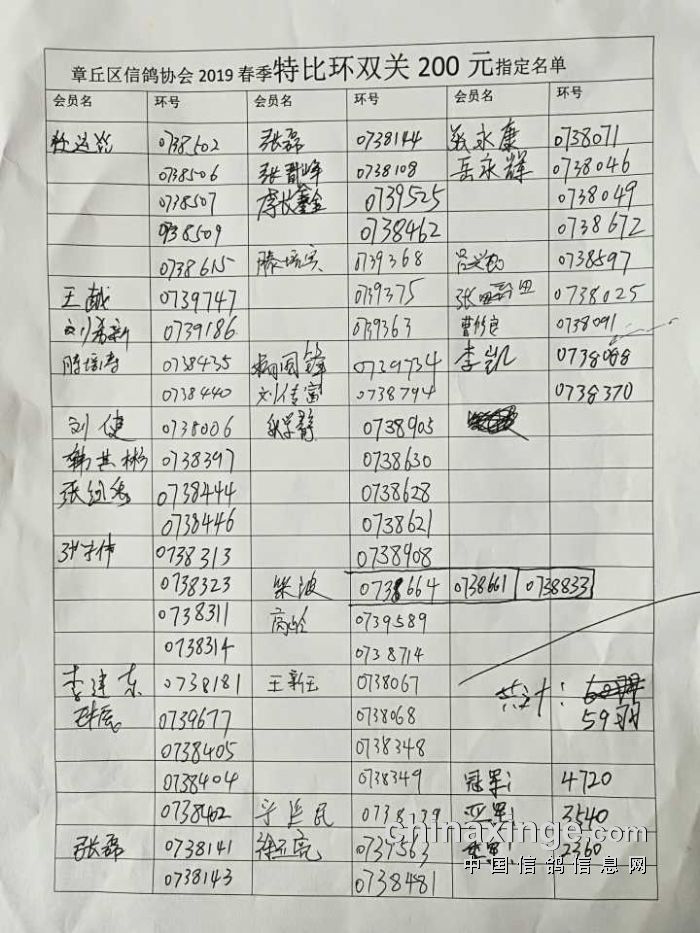 章丘区信鸽协会2019春季特比环双关200元指定名单
会员名 环号 会员名 环号 会员名 环号
0738502 张磊 0738144 永康 0738071
0738506 张 峰 0738108 岳永辉 0738046
0738507 李长鑫 0739525 0738049
0738509 0738462 0738672
0738615 滕培 0739368 0738597
王越 0739747 0739375 张 0738025
刘希新 0739186 0739363 曹 良 0738091
滕培 0738435 0739734 李凯 0738088
0738440 刘 富 0738794 0738370
刘健 0738006 0738905
韩其彬 0738397 0738630
张 0738444 0738628
0738446 0738621
张 伟 0738313 0738908
0738323 波 0738664 0738661 0738833
0738311 0739589
0738314 0738714
李建东 0738181 王新 0738067 共计:
0739677 0738068 59羽
0738405 0738348
0738404 0738349 冠军: 4720
0738402 民 0738139 亚军: 3540
张磊 0738141 徐 亮 0737563 季军: 2360
0738143 0738481
chinaxinge.com
中国信鸽信息网